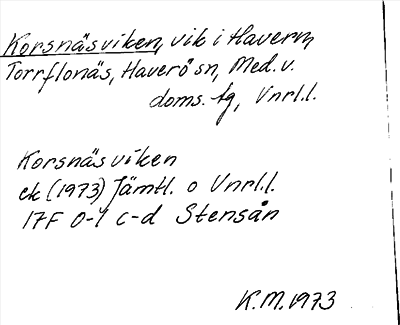 Korsnäsviken, vik i Havern,
Torrflonäs, Haverö sn, Med. v.
doms. tg, Vnrl.l.
Korsnäsviken
ek (1973) Jämtl. o Vnrl.l.
17F 0-1 c-d Stensån
K.M. 1973